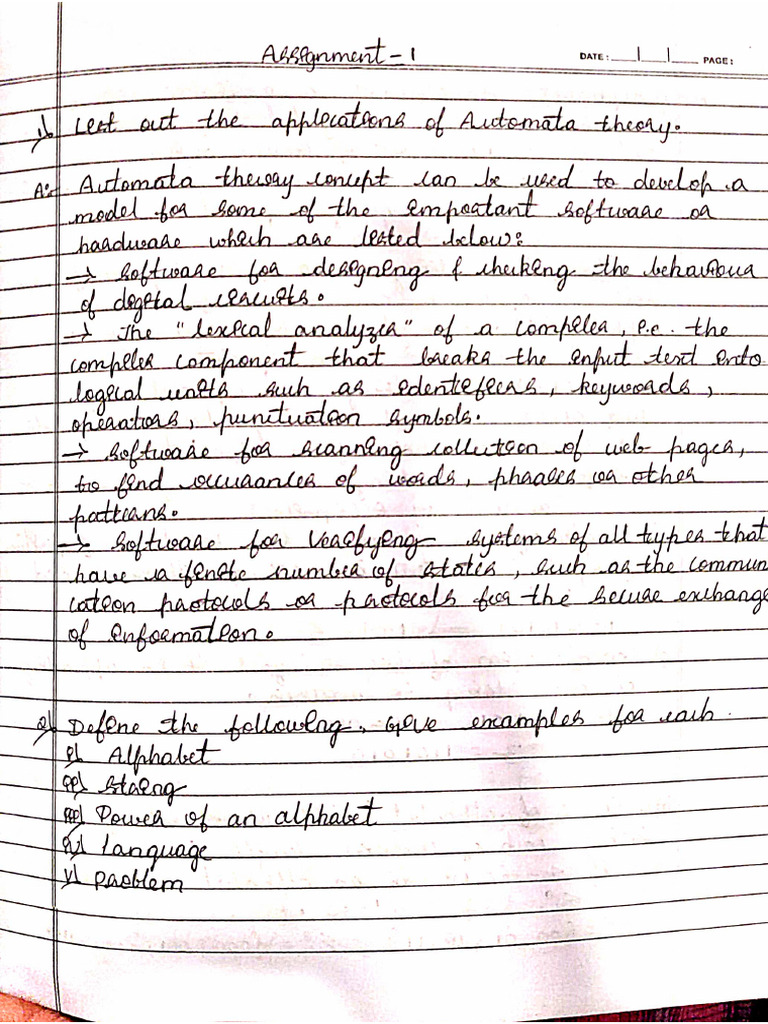 Assignment - 1
DATE: __|__|__ PAGE:
1) List out the applications of Automata theory.
A:- Automata theory concept can be used to develop a
model for some of the important software or
hardware which are listed below:
→ software for designing & checking the behaviour
of digital circuits.
→ The "lexical analyzer" of a compiler, i.e. the
compiler component that breaks the input text into
logical units such as identifiers, keywords,
operators, punctuation symbols.
→ software for scanning collection of web pages,
to find occurances of words, phrases or other
patterns.
→ software for Verifying systems of all types that
have a finite number of states, such as the commun
ication protocols or protocols for the secure exchange
of information.
2) Define the following. Give examples for each.
i) Alphabet
ii) String
iii) Power of an alphabet
iv) Language
v) Problem